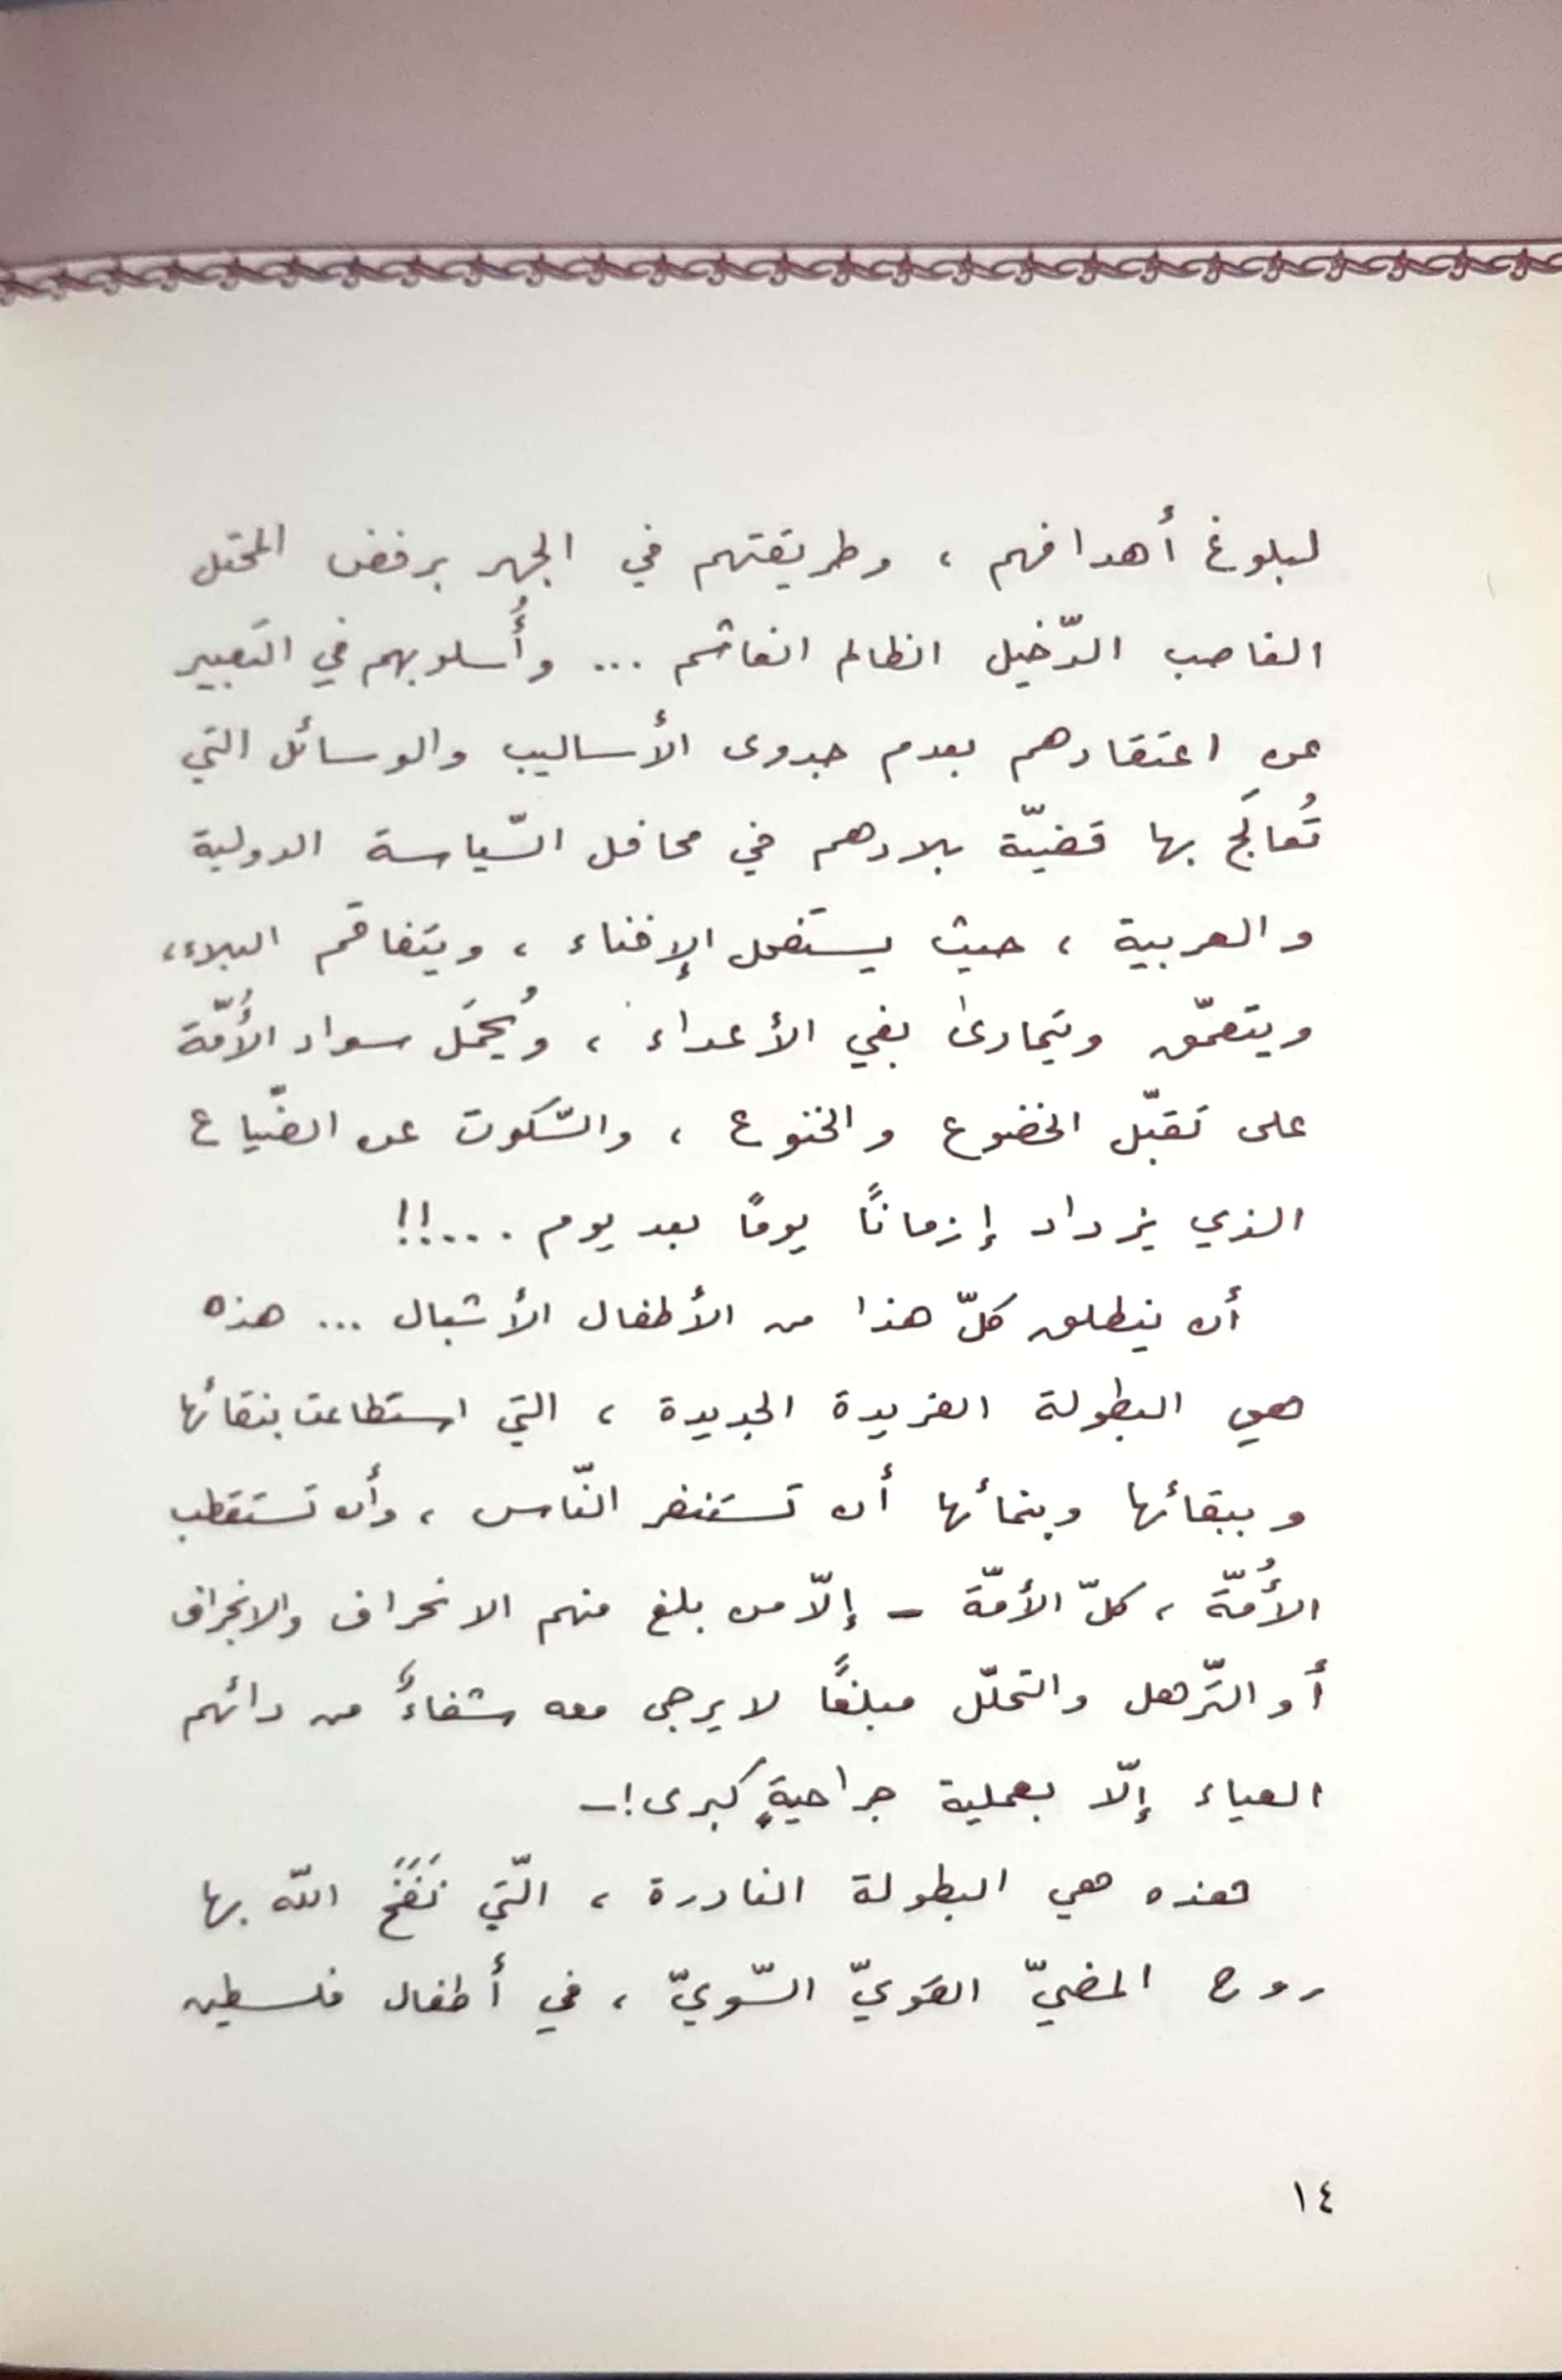 لبلوغ أهدافهم ، وطريقتهم في الجهر برفض المحتل
الغاصب الدّخيل الظالم الغاشم ... وأُسلوبهم في التعبير
عن اعتقادهم بعدم جدوى الأساليب والوسائل التي
تُعالَج بها قضيّة بلادهم في محافل السّياسة الدولية
والعربية ، حيث يستفحل الإفناء ، ويتفاقم البلاء،
ويتعمّق ويتمادى بغي الأعداء ، ويُحمَل سواد الأُمّة
على تقبّل الخضوع والخنوع ، والسّكوت عن الضّياع
الذي يزداد إزمانًا يومًا بعد يوم ....!!
أن ينطلق كلّ هذا من الأطفال الأشبال ... هذه
هي البطولة الفريدة الجديدة ، التي استطاعت بنقائها
وببقائها وبنمائها أن تستنفر النّاس ، وأن تستقطب
الأُمّة ، كلّ الأمّة - إلّا من بلغ منهم الانحراف والانجراف
أو التّرهل والتحلّل مبلغًا لا يرجى معه شفاءٌ من دائهم
العياء إلّا بعملية جراحيةٍ كبرى!-
هذه هي البطولة النادرة ، الّتي نَفَخَ الله بها
روح المضيّ القويّ السّويّ ، في أطفال فلسطين
١٤